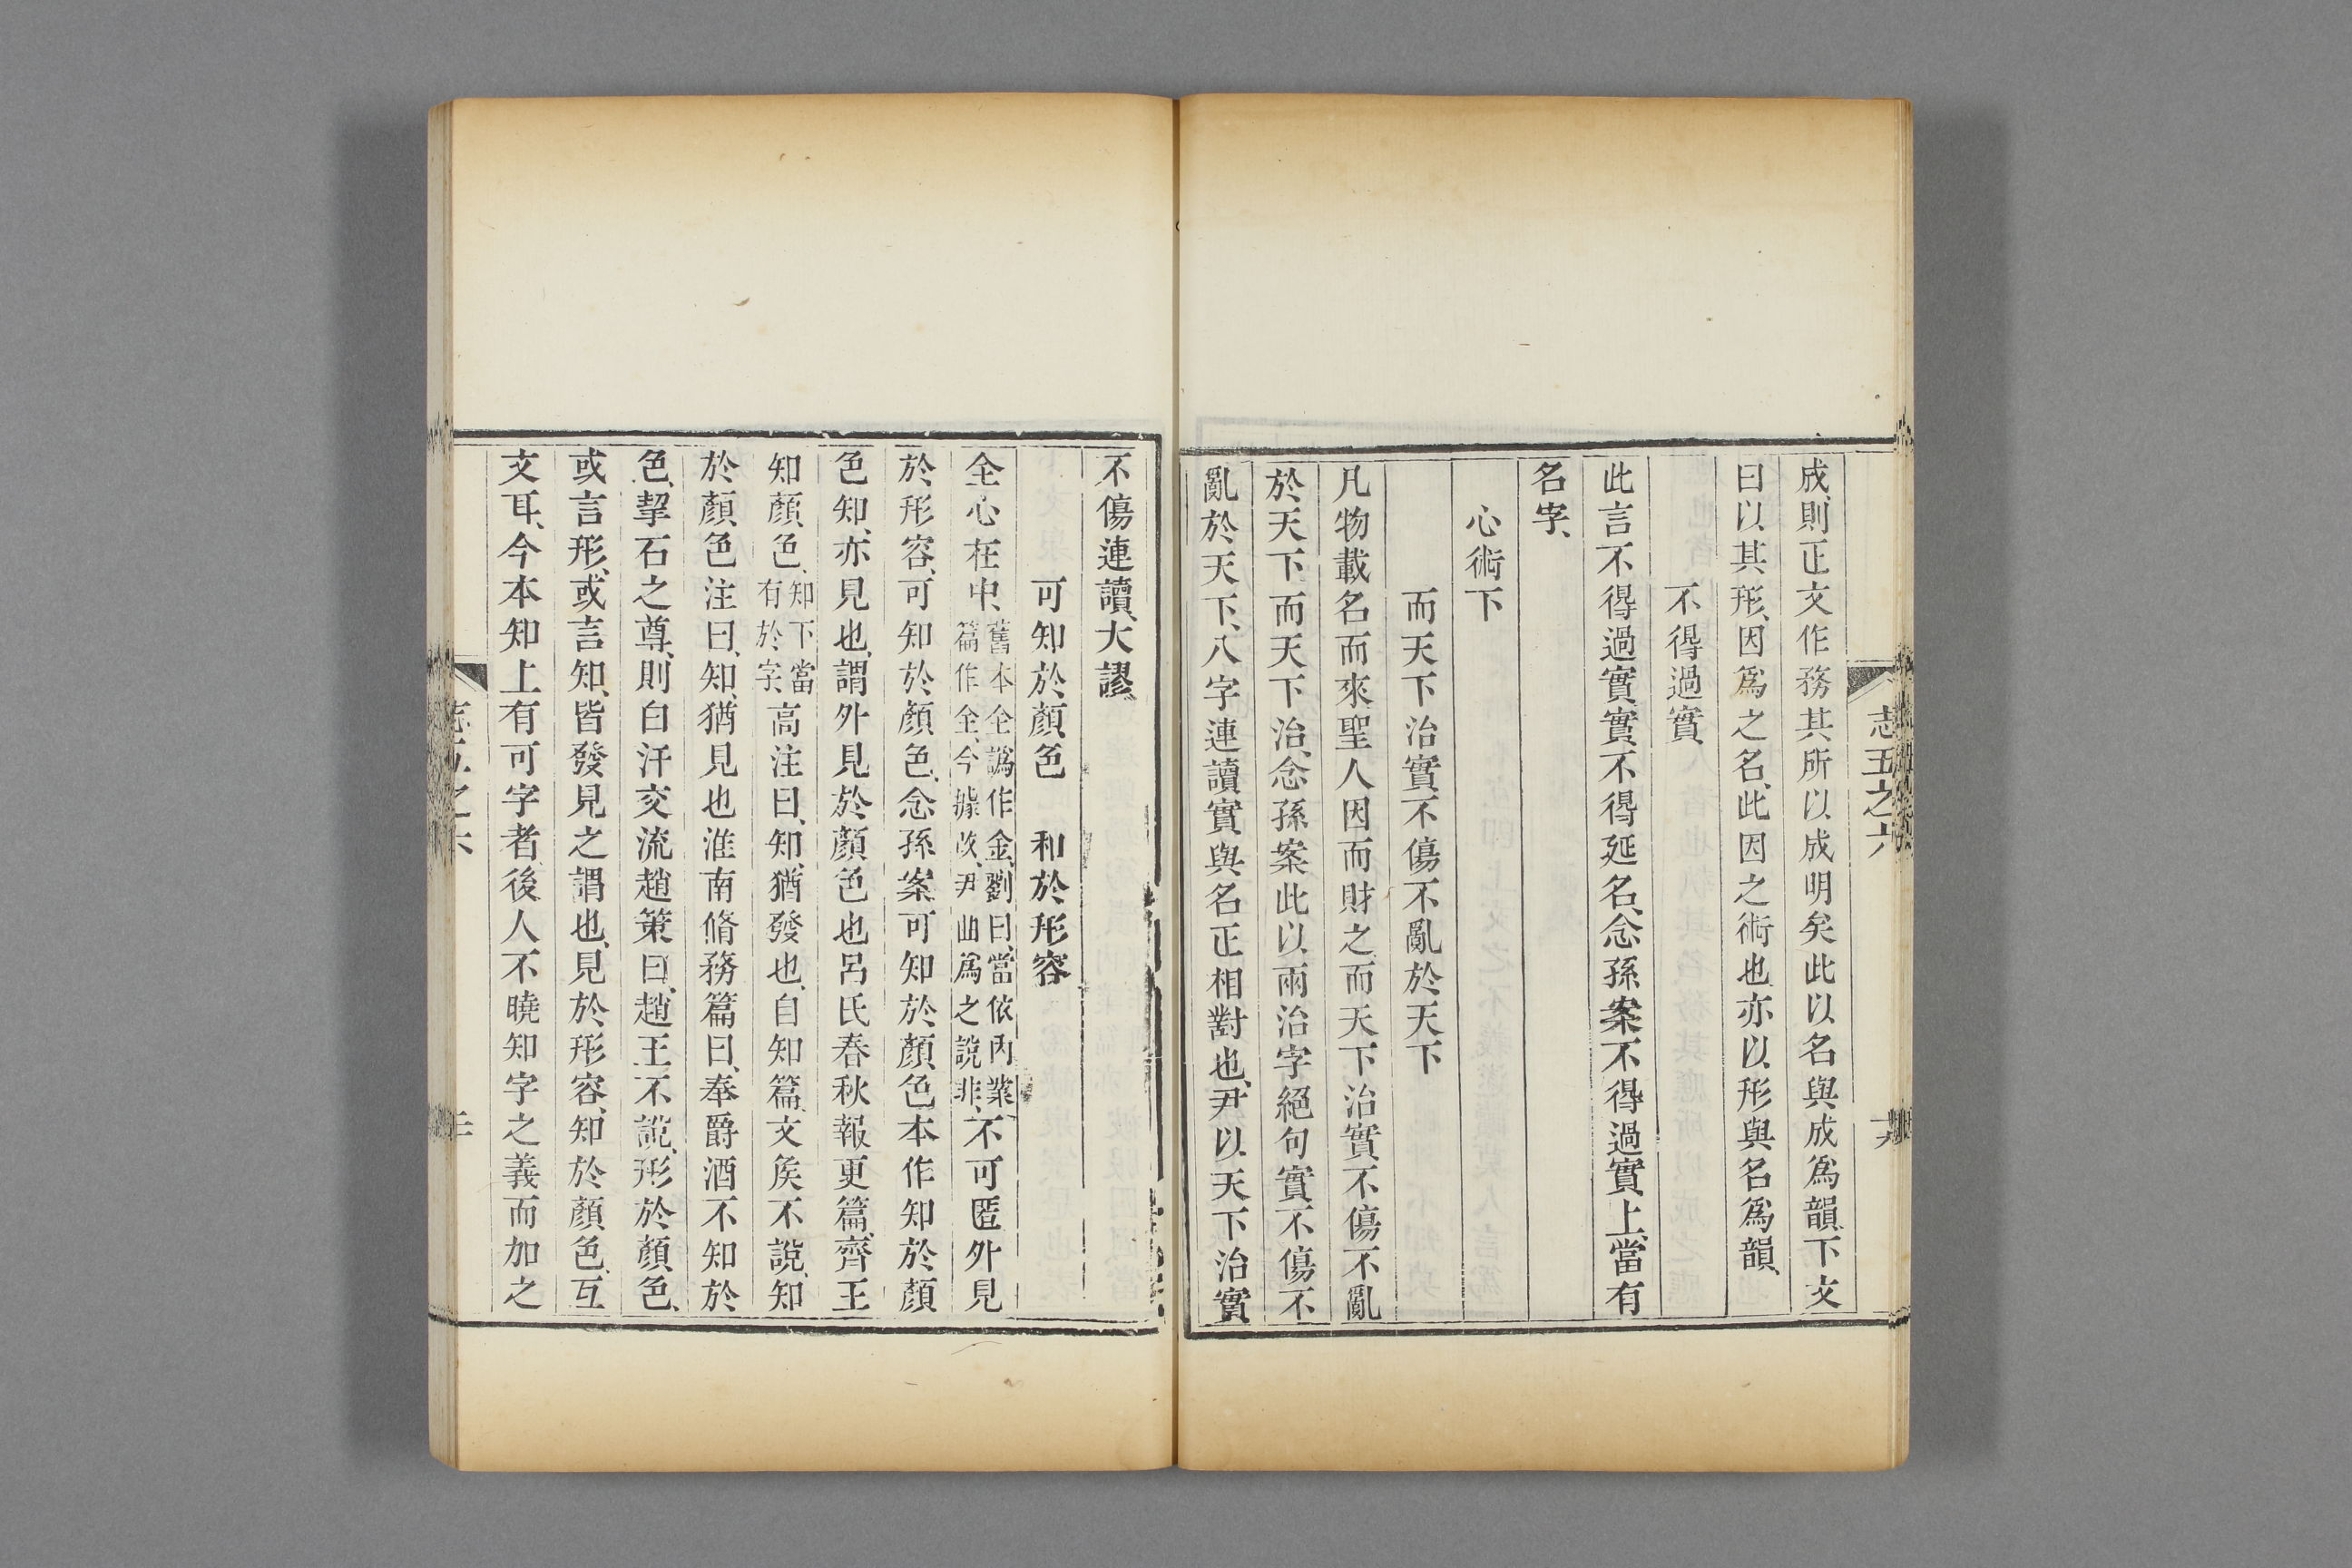 志五之六
成則正文作務其所以成明矣此以名與成爲韻下文
曰以其形因爲之名此因之術也亦以形與名爲韻
不得過實
此言不得過實實不得延名念孫案不得過實上當有
名字
心術下
而天下治實不傷不亂於天下
凡物載名而來聖人因而財之而天下治實不傷不亂
於天下而天下治念孫案此以兩治字絕句實不傷不
亂於天下八字連讀實與名正相對也尹以天下治實
不傷連讀大謬
可知於顏色　和於形容
全心在中舊本全譌作金劉曰當依內業
篇作全今據改尹曲爲之說非不可匿外見
於形容可知於顏色念孫案可知於顏色本作知於顏
色知亦見也謂外見於顏色也呂氏春秋報更篇齊王
知顏色知下當
有於字高注曰知猶發也自知篇文矦不說知
於顏色注曰知猶見也淮南脩務篇曰奉爵酒不知於
色挈石之尊則白汗交流趙策曰趙王不說形於顏色
或言形或言知皆發見之謂也見於形容知於顏色互
文耳今本知上有可字者後人不曉知字之義而加之